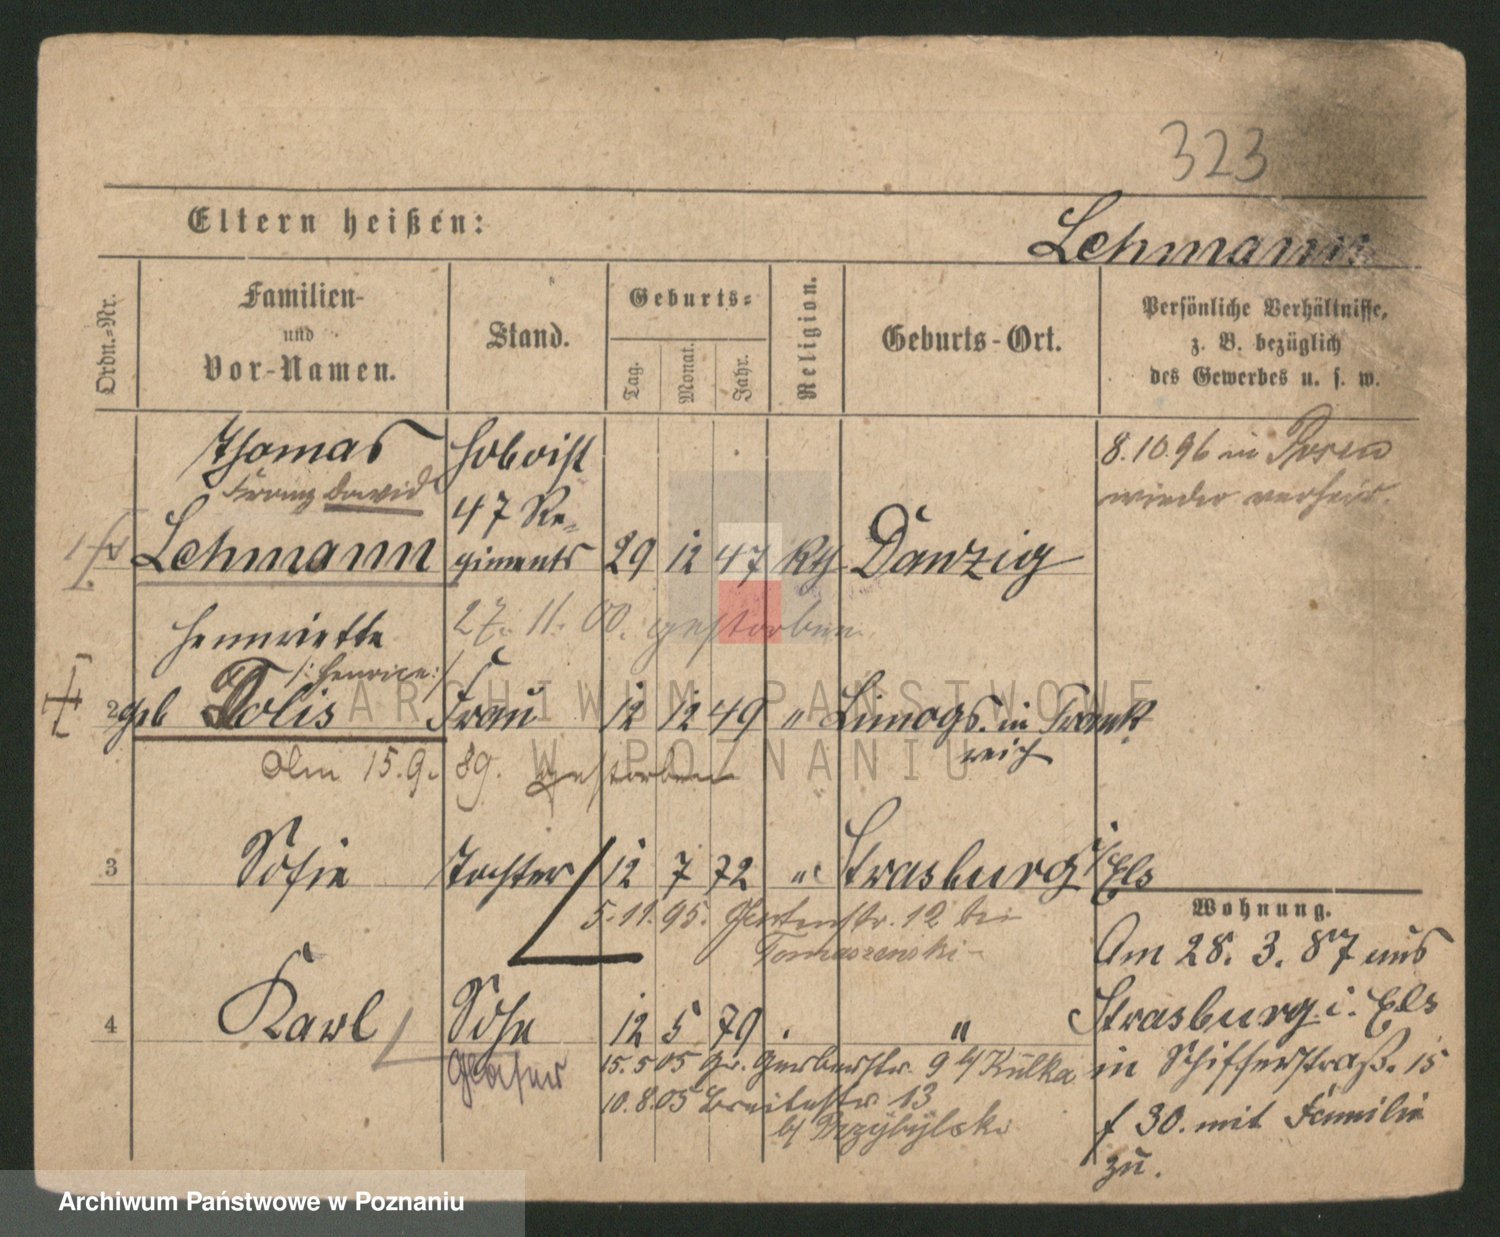 323
Eltern heißen:
Lehmann
Ordn.-Nr.
Familien-
und
Vor-Namen.
Stand.
Geburts-
Tag.
Monat.
Jahr.
Religion.
Geburts-Ort.
Persönliche Verhältnisse,
z. B. bezüglich
des Gewerbes u. s. w.
Thomas
Franz David
Lehmann
Hoboist
47 Re-
giments
29 12 47 Kth Danzig
8.10.96 in Posen
wieder verheir.
27. 11. 00. gestorben
Hennriette
/: Henrice :/
2 geb Dolis Frau 12 12 49 " Limogs. in Frank
reich
Am 15. 9. 89. gestorben
3 Sofie Tochter 12 7 72 " Strasburg i/Els
5.11.95. Gartenstr. 12 bei
Tomaszewski
4 Karl Sohn 12 5 79 " "
Glaser
15.5.05 Gr. Gerberstr. 9 b/ Kulka
10.8.05 Breitestr. 13
b/ Przybylski
Wohnung.
Am 28. 3. 87 aus
Strasburg i. Els
in Schifferstraß. 15
f 30. mit Familie
zu.
ARCHIWUM PAŃSTWOWE
W POZNANIU
Archiwum Państwowe w Poznaniu